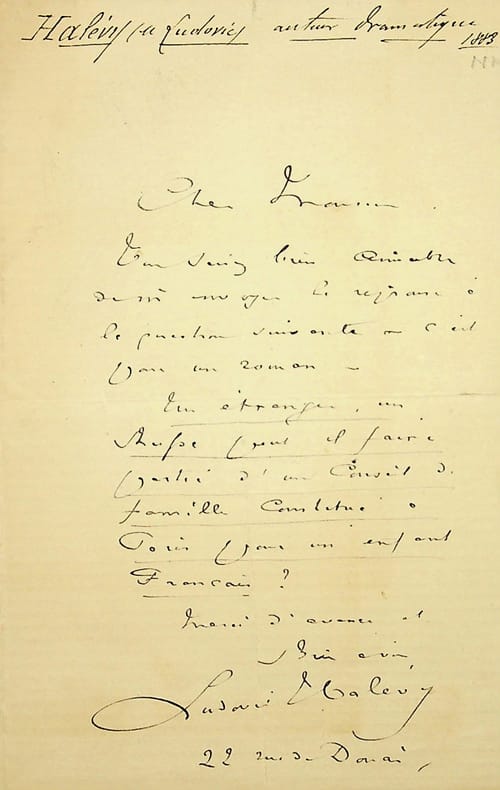 Halévy (Ludovic) auteur dramatique
1883
Cher Monsieur
Vous seriez bien aimable
de m'envoyer la réponse à
la question suivante – c'est
pour un roman –
Un étranger, un
Russe peut il faire
partie d'un Conseil de
famille constitué à
Paris pour un enfant
Français ?
Merci d'avance et
bien à vous
Ludovic Halévy
22 rue de Douai,